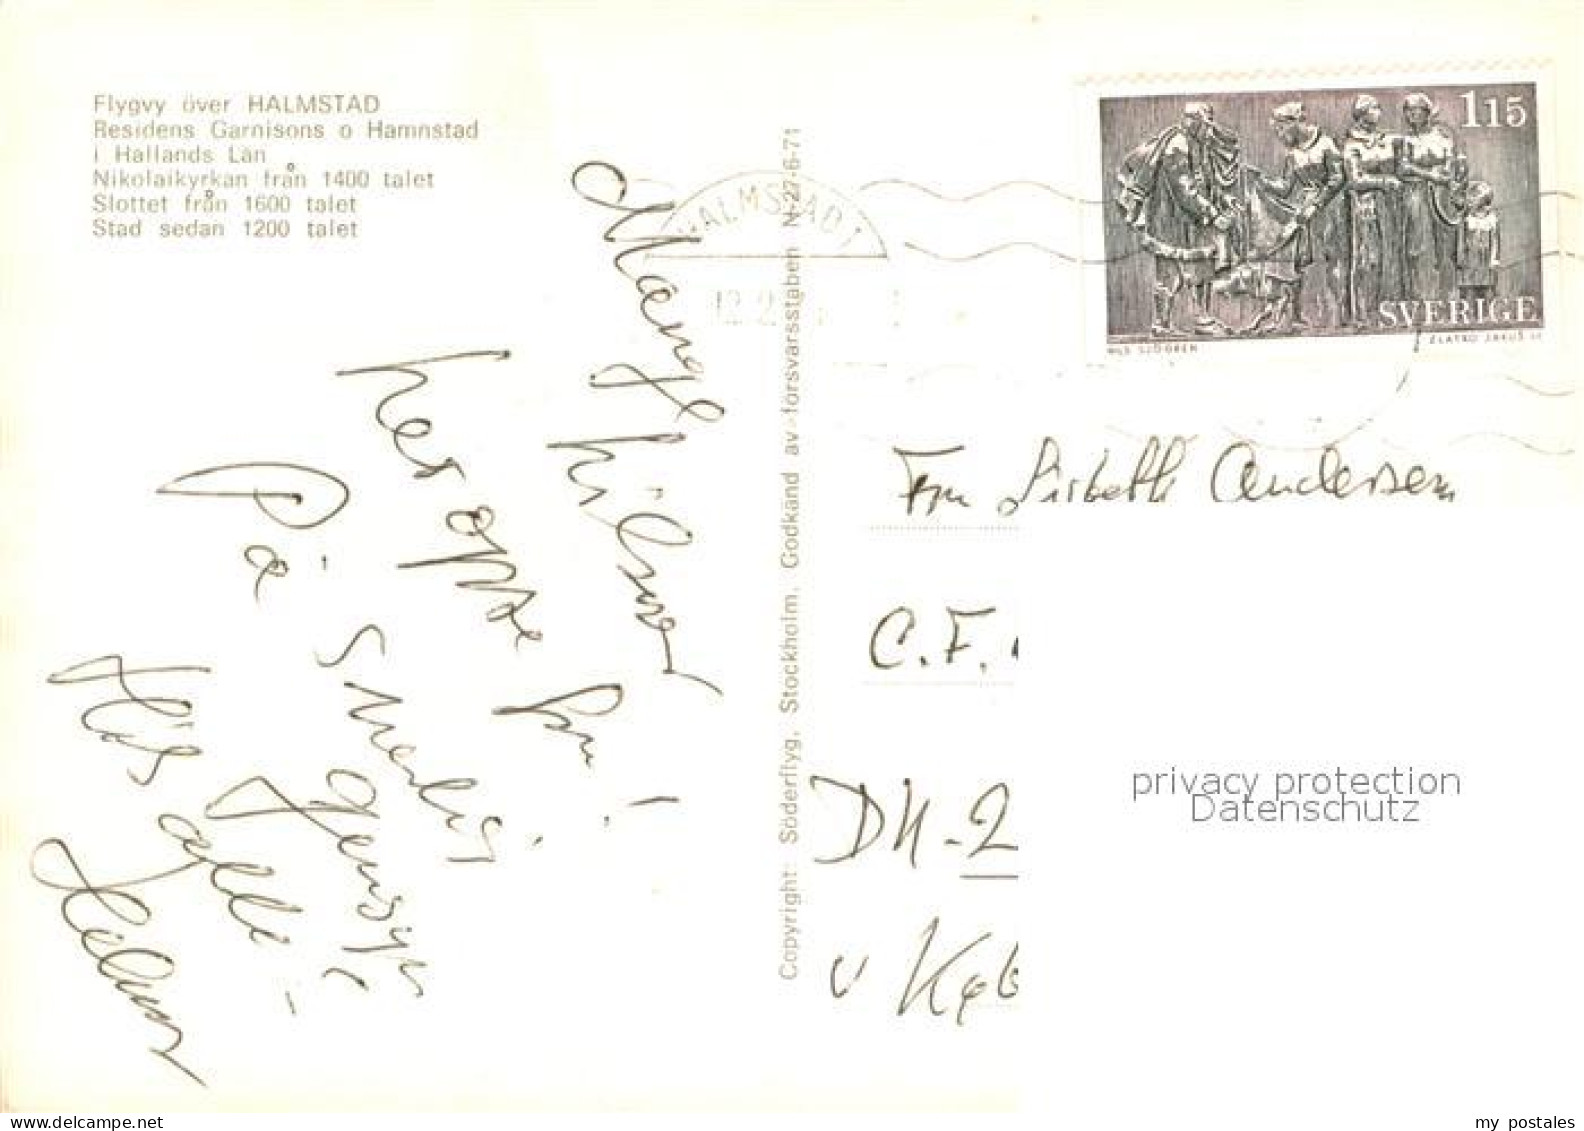 Flygvy över HALMSTAD
Residens Garnisons o Hamnstad
i Hallands Län
Nikolaikyrkan från 1400 talet
Slottet från 1600 talet
Stad sedan 1200 talet
Mange hilsner
her oppe fra!
På snarlig
gensyn!
Hils alle!
Copyright: Söderflyg, Stockholm. Godkänd av försvarsstaben N-27-6-71
HALMSTAD 1
12.2
1 15
SVERIGE
NILS SJÖGREN
ZLATKO JAKUS SC
Fru Lisbeth Andersen
C.F.
DK-2
v Kbb
privacy protection
Datenschutz
my postales